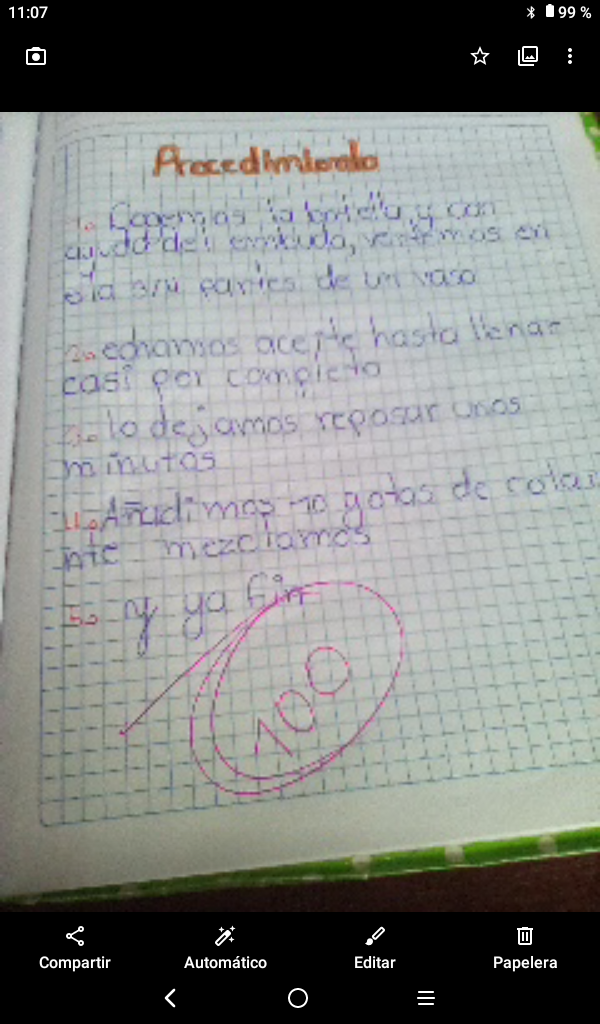 11:07
99 %
Procedimiento
1. Cogemos la botella, y con
ayuda del embudo, vertemos en
ella 3/4 partes de un vaso
2. echamos aceite hasta llenar
casi por completo
3. lo dejamos reposar unos
minutos
4. Añadimos 10 gotas de colora
nte mezclamos
5. y ya fin
100
Compartir
Automático
Editar
Papelera